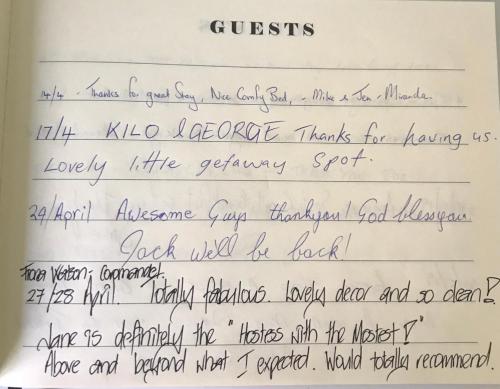 GUESTS
14/4 - Thanks for great Stay, Nice Comfy Bed, - Mike & Jen - Miranda.
17/4 KILO & GEORGE Thanks for having us.
Lovely little getaway spot.
24/April Awesome Guys thankyou! God bless you
Jack we'll be back!
Fiona Watson, Coromandel.
27/28 April. Totally fabulous. Lovely decor and so clean!
Jane is definitely the "Hostess with the Mostest!"
Above and beyond what I expected. Would totally recommend.